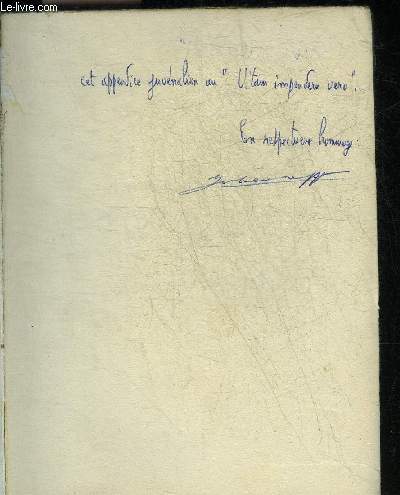 Le-livre.com
cet appendice juvénalien au "Vitam impendere vero".
En respectueux hommage.